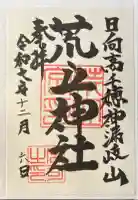 日向高千穂神漏岐山
荒立神社
奉拝
令和七年十二月
六日